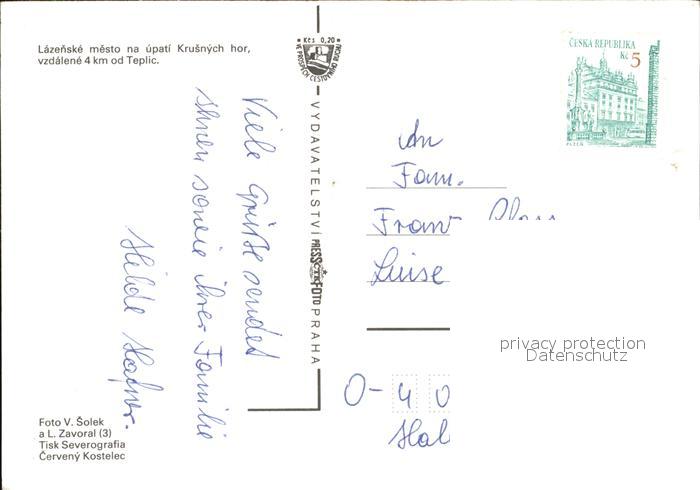 Lázeňské město na úpatí Krušných hor,
vzdálené 4 km od Teplic.
Kčs 0,20
VE PROSPĚCH CESTOVNÍHO RUCHU
ČESKÁ REPUBLIKA
Kč 5
PLZEŇ
VYDAVATELSTVÍ PRESSFOTO PRAHA
Viele Grüße sendet
Ihnen sowie ihrer Familie
Hilde Hafner.
An
Fam.
Franz
Luise
privacy protection
Datenschutz
O- 4 0
Hal
Foto V. Šolek
a L. Zavoral (3)
Tisk Severografia
Červený Kostelec